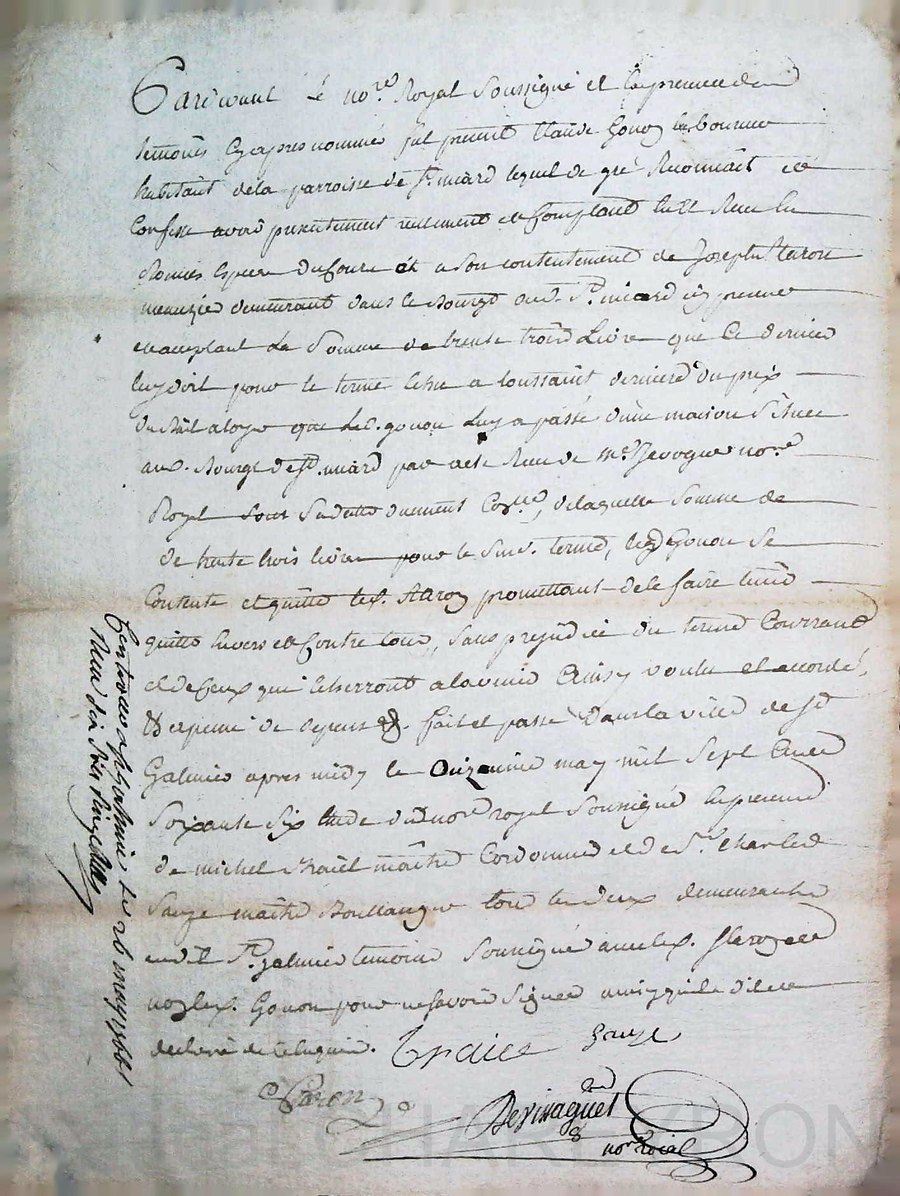 Pardevant le no.re Royal Soussigné et En presence des
temoins cy apres nommés fut present Claude Gonon laboureur
habitant de la parroisse de St. médard lequel de gré Reconnait et
Confesse avoir presentement reellement et Comptant Eu et Receu En
Bonnes Especes du Cours et a son contentement de Joseph
menuzier demeurant dans le Bourg dud. St. médard icy present
et acceptant La Somme de trente trois Livre que Ce dernier
luy doit pour le terme Echu a toussaint dernier du prix
du Bail a loyer que Led. gonon Luy a passé d'une maison Situee
aud. Bourg de St. médard par acte Receu de Me. no.re
Royal Sous Sa datte duement Co.llé, de laquelle Somme de
de trente trois livre pour le Susd. terme, led. Gonon Se
Contente et quitte led. promettant de le faire tenir
quitte Envers et Contre tous, Sans prejudice du terme Courrant
et de Ceux qui Echerront a lavenir Ainsy voulu et accordé,
a peine de depens &. fait et passé dans la ville de St
Galmier apres midy le Onzieme may mil Sept Cent
Soixante Six Etude dud. no.re royal Soussigné En presence
de michel maitre Cordonnier et de Sr. Charles
Sauze maitre Boullanger tous les deux demeurants
aud. St. Galmier temoins Soussignés avec led. et
non led. Gonon pour ne savoir Signer ainsy qu'il a dit et
declaré de Ce Enquis.
Sauze
no.re Roial
Controlé a St Galmier Le 26 may 1766
Receu dix Sols